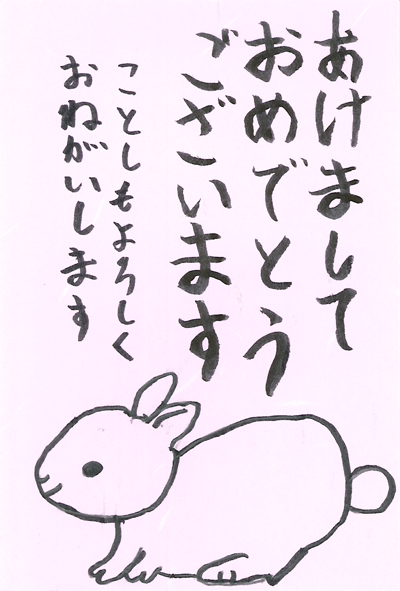 あけまして
おめでとう
ございます
ことしもよろしく
おねがいします